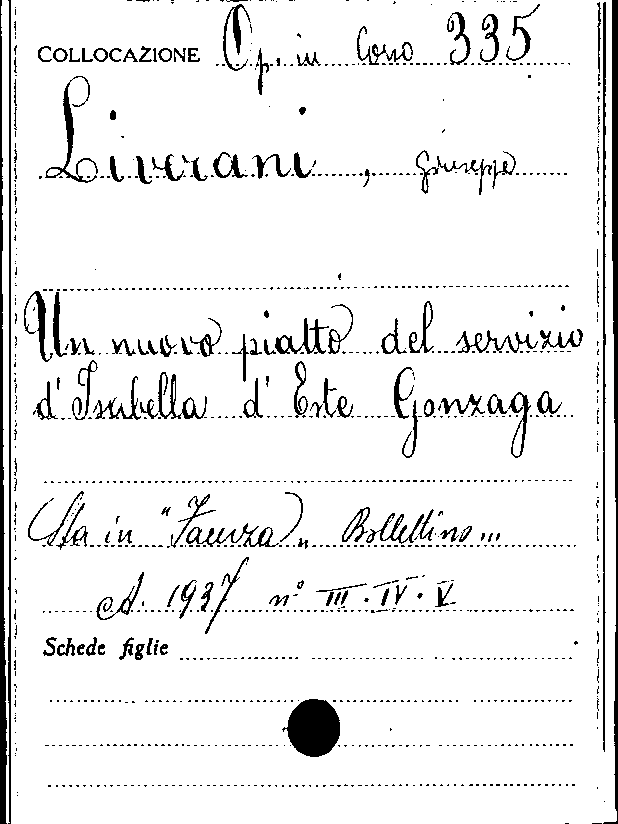 COLLOCAZIONE Op. in Corso 335
Liverani, Giuseppe
Un nuovo piatto del servizio
d'Isabella d'Este Gonzaga
(Sta in "Faenza„ Bollettino...
A. 1937 n° III. IV. V
Schede figlie